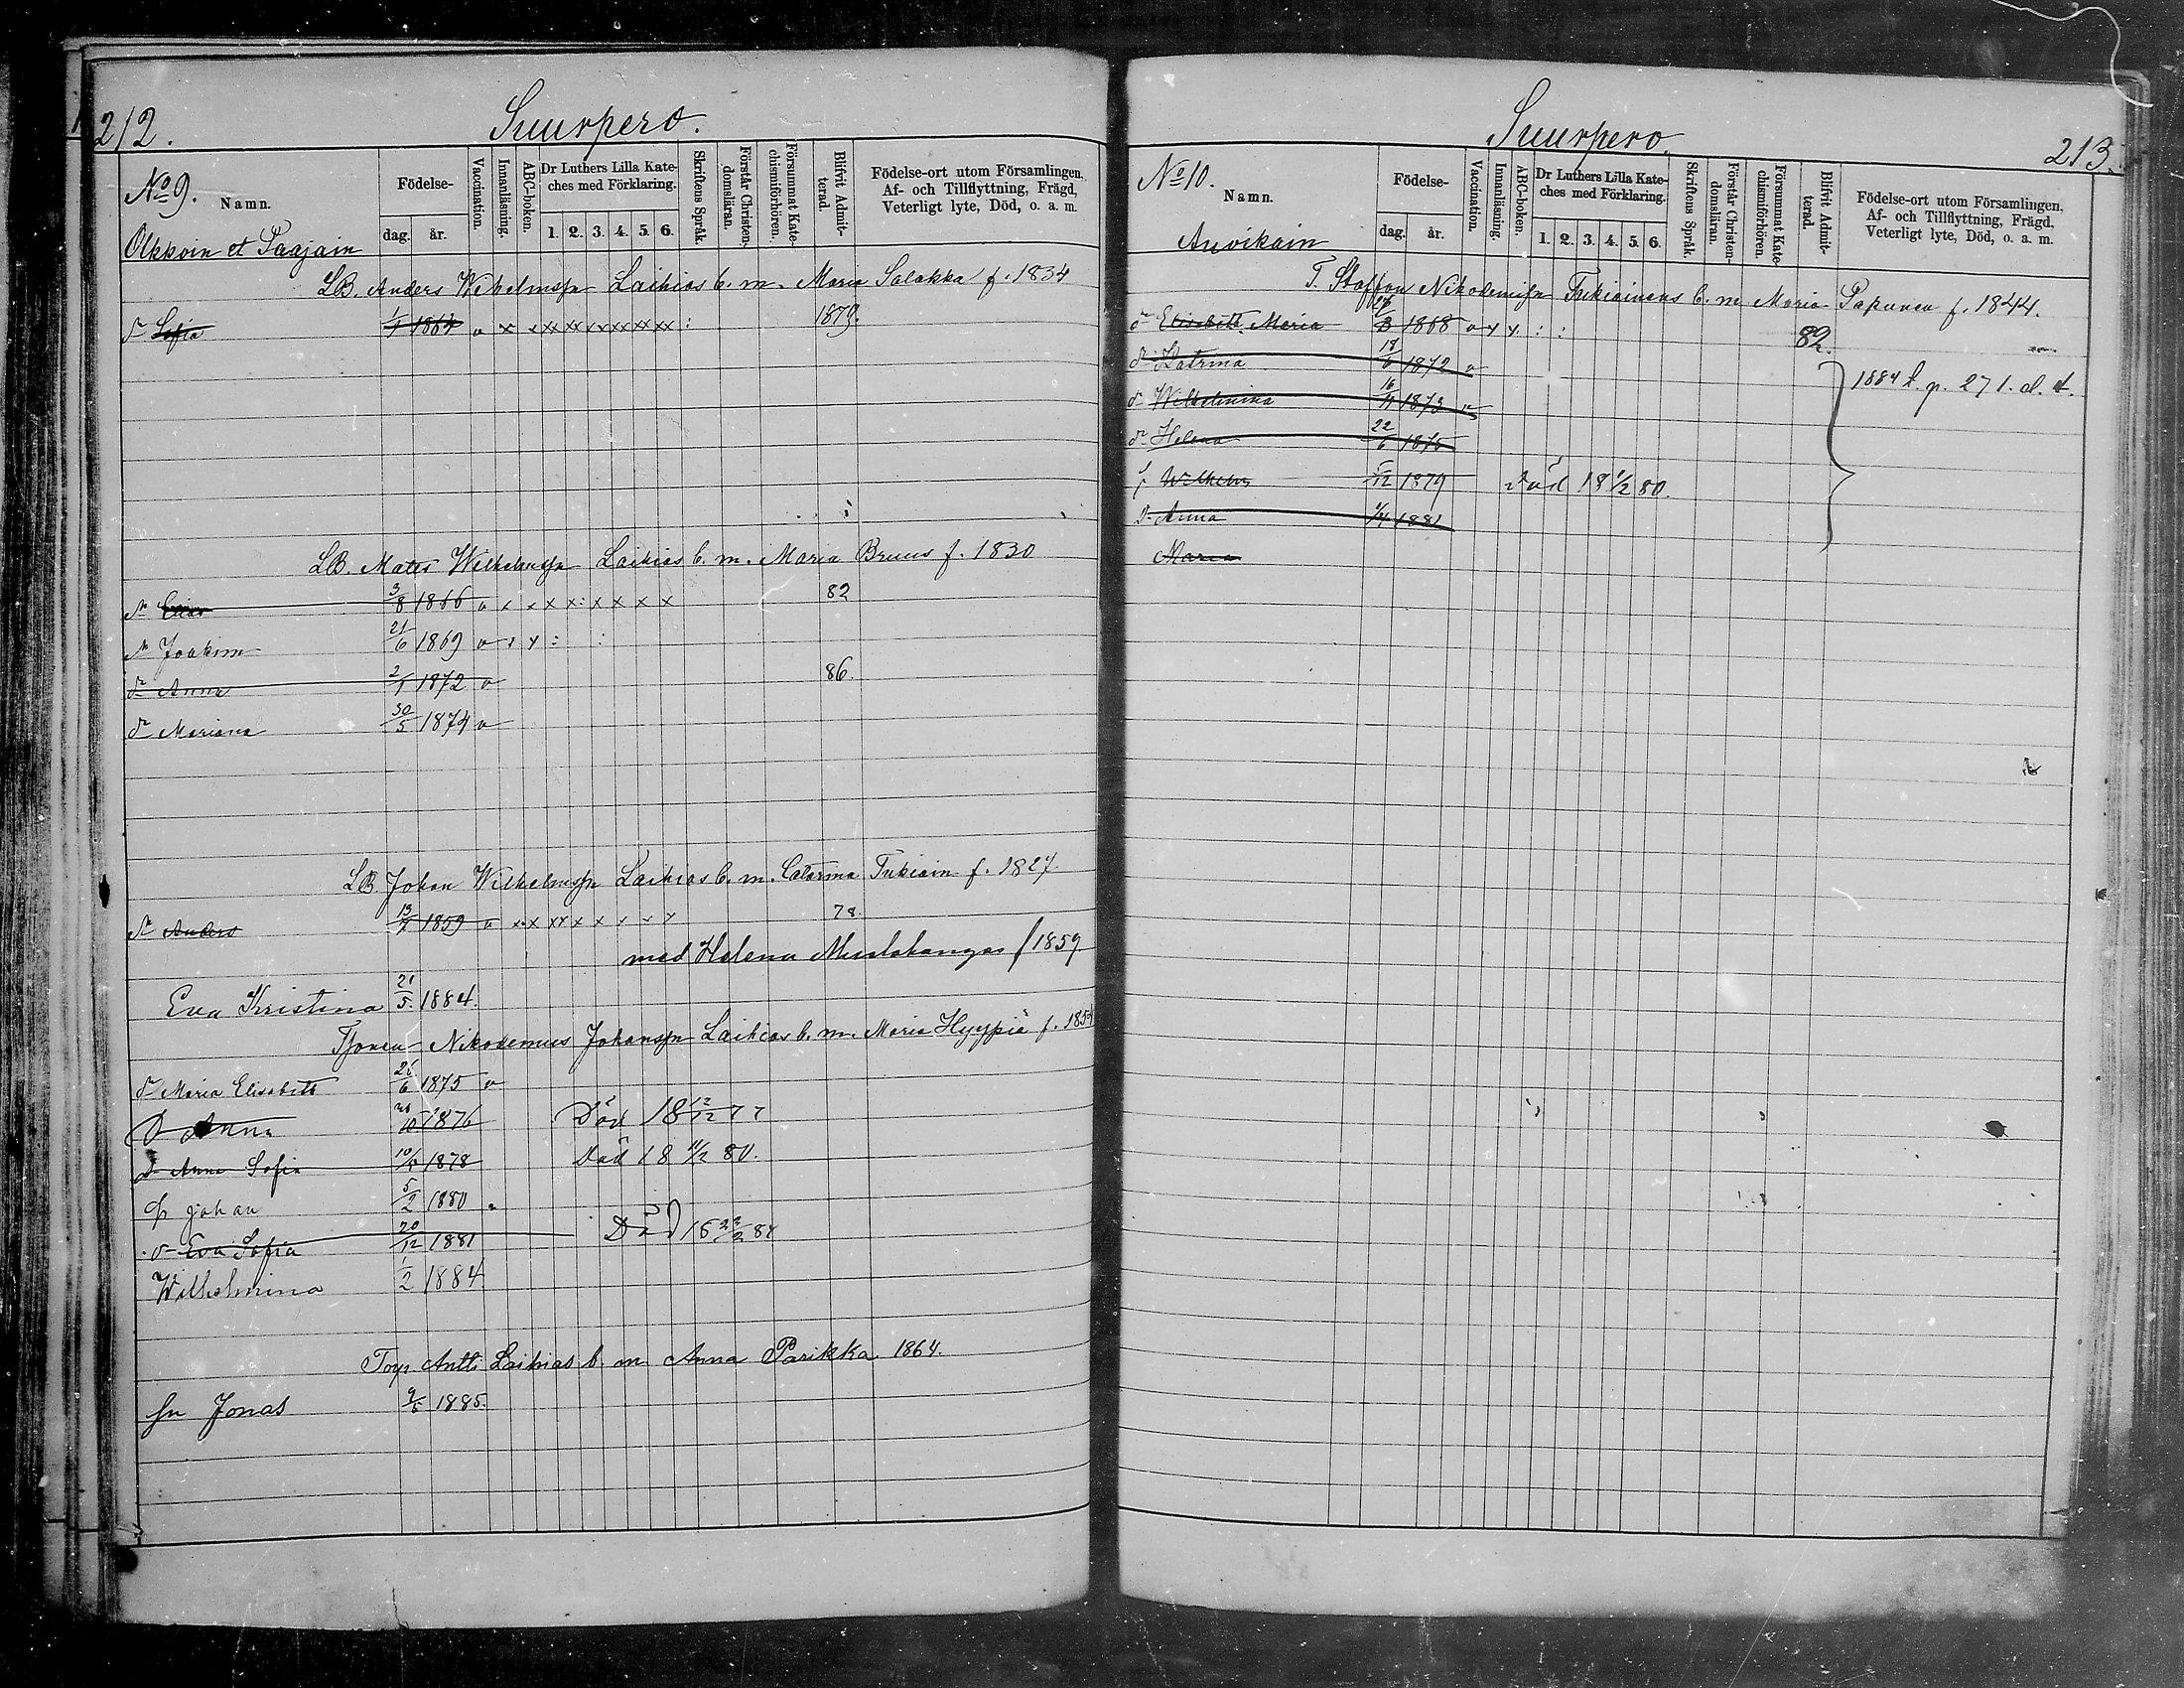 212.
Suurpero.
No 9.
Namn.
Födelse-
dag. år.
Vaccination.
Innanläsning.
ABC-boken.
Dr Luthers Lilla Kate-
ches med Förklaring.
1. 2. 3. 4. 5. 6.
Skriftens Språk.
Förstår Christen-
domsläran.
Försummat Kate-
chismiförhören.
Blifvit Admit-
terad.
Födelse-ort utom Församlingen.
Af- och Tillflyttning, Frägd,
Veterligt lyte, Död, o. a. m.
Olkkoin et Paajain
LB. Anders Wilhelmsn Laihias b. m. Maria Salakka f. 1834
dr Sofia 1/1 1864 1879.
LB. Mats Wilhelmsn Laihias b. m. Maria Bruus f. 1830
3/8 1866 82
Joakim 21/6 1869
dr Anna 2/1 1872 86.
dr Mariana 30/5 1874
LB Johan Wilhelmsn Laihias b. m. Catarina Tukiain f. 1827.
Anders 1859 78.
med Helena f 1859
Eva Kristina 21/5. 1884.
Nikodemus Johansn Laihias b. m. Maria Hyypiä f. 1854
dr Maria Elisabeth 26/6 1875
D Anna 1876 Död 18 12/12 77
D Anna Sofia 1878 Död 18 11/2 80.
Johan 5/2 1880
Eva Sofia 20/12 1881 Död 18 22/2 84
Wilhelmina 1/2 1884
Antti Laihias b. m. Anna Parikka 1864.
sn Jonas 1885.
Suurpero.
213.
No 10.
Namn.
Födelse-
dag. år.
Vaccination.
Innanläsning.
ABC-boken.
Dr Luthers Lilla Kate-
ches med Förklaring.
1. 2. 3. 4. 5. 6.
Skriftens Språk.
Förstår Christen-
domsläran.
Försummat Kate-
chismiförhören.
Blifvit Admit-
terad.
Födelse-ort utom Församlingen.
Af- och Tillflyttning, Frägd,
Veterligt lyte, Död, o. a. m.
Auvikain
T. Staffan Nikodemisn Tukiainens b. m. Maria Papunen f. 1844.
dr Elisabeth Maria 1868 82.
dr Katrina 18/6 1872
dr Wilhelmina 1873
1884 l. p. 271. d. t.
dr Helena 22/6 1875
Wilhelm 5/12 1879 Död 18 1/2 80.
D Anna 1881
Maria